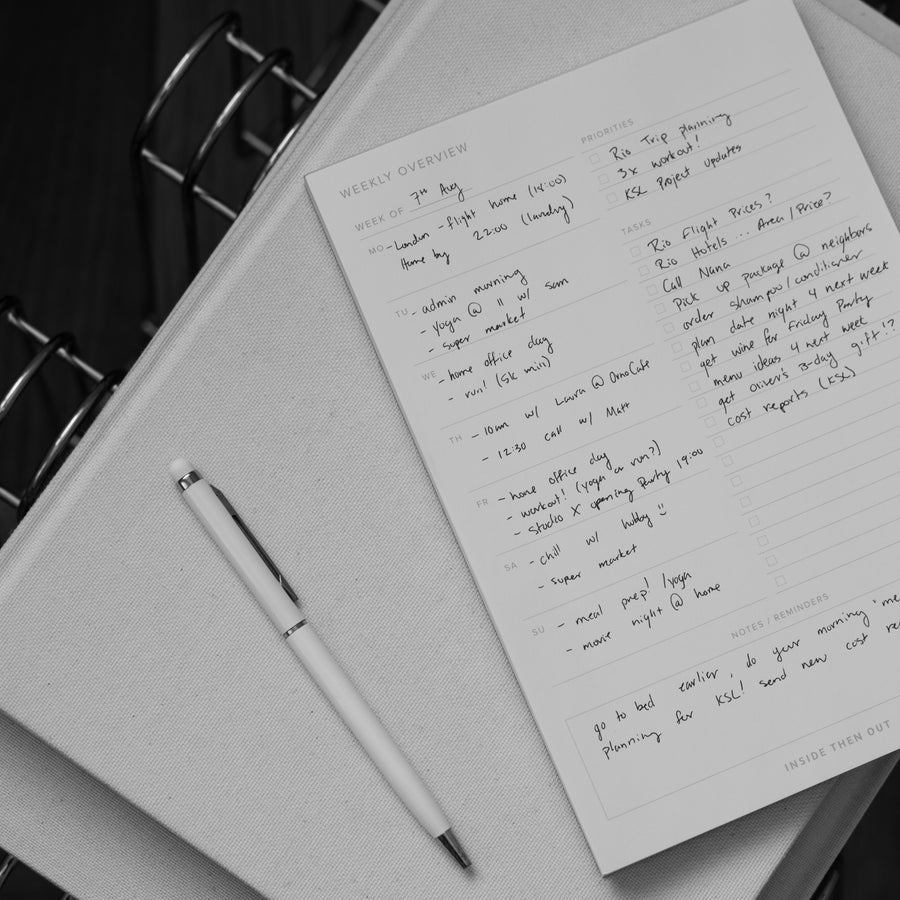 WEEKLY OVERVIEW
WEEK OF 7th Aug
MO - London - flight home (14:00)
Home by 22:00 (laundry)
TU - admin morning
- yoga @ 11 w/ sam
- super market
WE - home office day
- run! (5k min)
TH - 10am w/ Laura @ OmoCafe
- 12:30 call w/ Matt
FR - home office day
- workout! (yoga or run?)
- Studio X opening Party 19:00
SA - chill w/ hubby
- super market
SU - meal prep! /yoga
- movie night @ home
PRIORITIES
Rio Trip planning
3x workout!
KSL Project updates
TASKS
Rio Flight Prices?
Rio Hotels ... Area/Price?
Call Nana
Pick up package @ neighbors
order shampoo/conditioner
plan date night 4 next week
get wine for Friday Party
menu ideas 4 next week
get Oliver's 3-day gift!?
cost reports (KSL)
NOTES / REMINDERS
go to bed earlier, do your morning
planning for KSL! send new cost
INSIDE THEN OUT